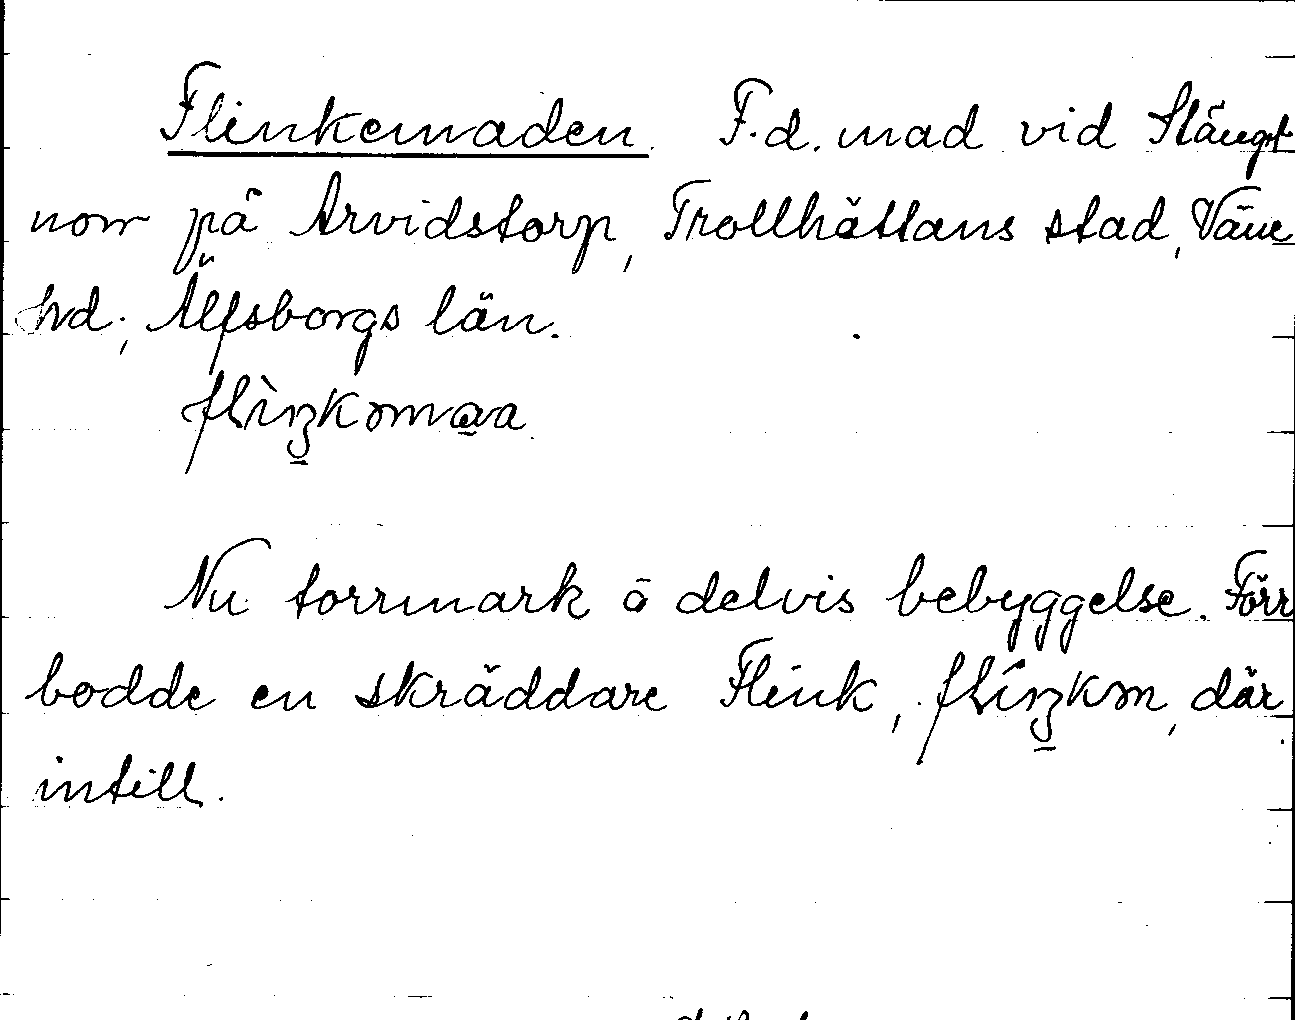 Flinkemaden. F.d. mad vid Slängt
nom på Arvidstorp, Trollhättans stad, Väne
hd., Älfsborgs län.

Nu torrmark å delvis bebyggelse. Förr
bodde en skräddare Flink, där
intill.